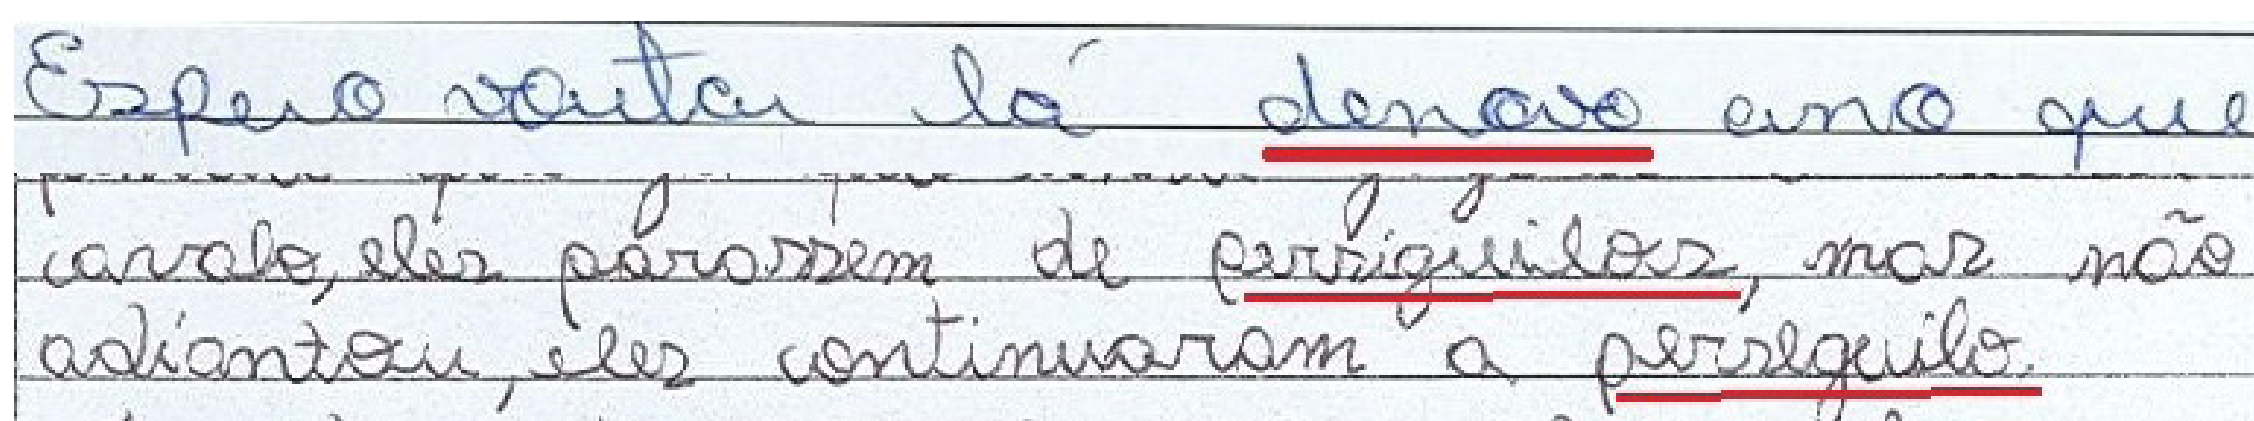 Espero voutar lá denovo ano que
cavalo, eles parassem de persiguilos, mas não
adiantou, eles continuaram a perseguilo.